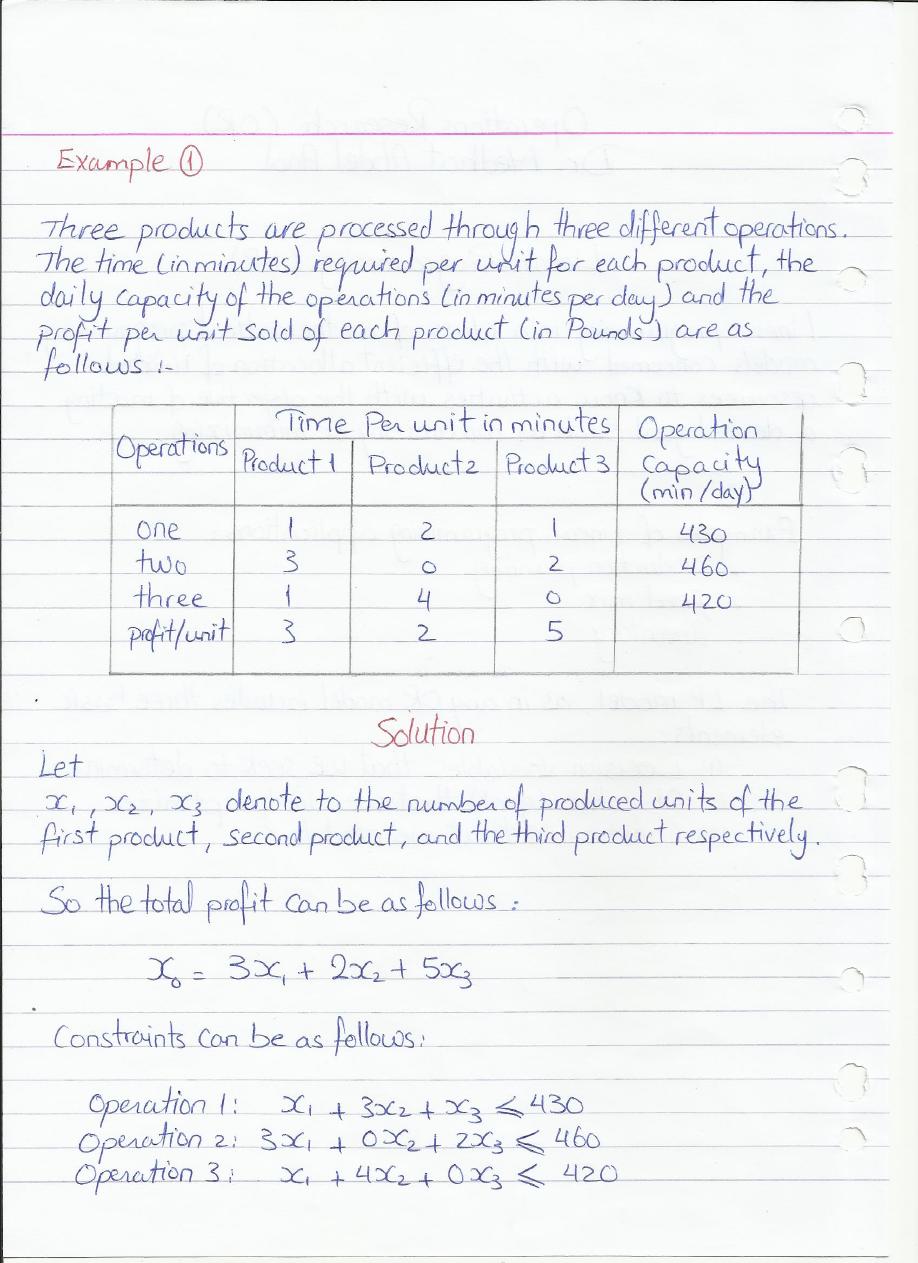 Example ①
Three products are processed through three different operations.
The time (in minutes) required per unit for each product, the
daily capacity of the operations (in minutes per day) and the
profit per unit sold of each product (in Pounds) are as
follows :-
Operations Time Per unit in minutes Operation Capacity (min/day)
Product 1 Product 2 Product 3
one 1 2 1 430
two 3 0 2 460
three 1 4 0 420
profit/unit 3 2 5
Solution
Let
x₁, x₂, x₃ denote to the number of produced units of the
first product, second product, and the third product respectively.
So the total profit can be as follows :
x₀ = 3x₁ + 2x₂ + 5x₃
Constraints can be as follows:
Operation 1: x₁ + 3x₂ + x₃ ⩽ 430
Operation 2: 3x₁ + 0x₂ + 2x₃ ⩽ 460
Operation 3: x₁ + 4x₂ + 0x₃ ⩽ 420